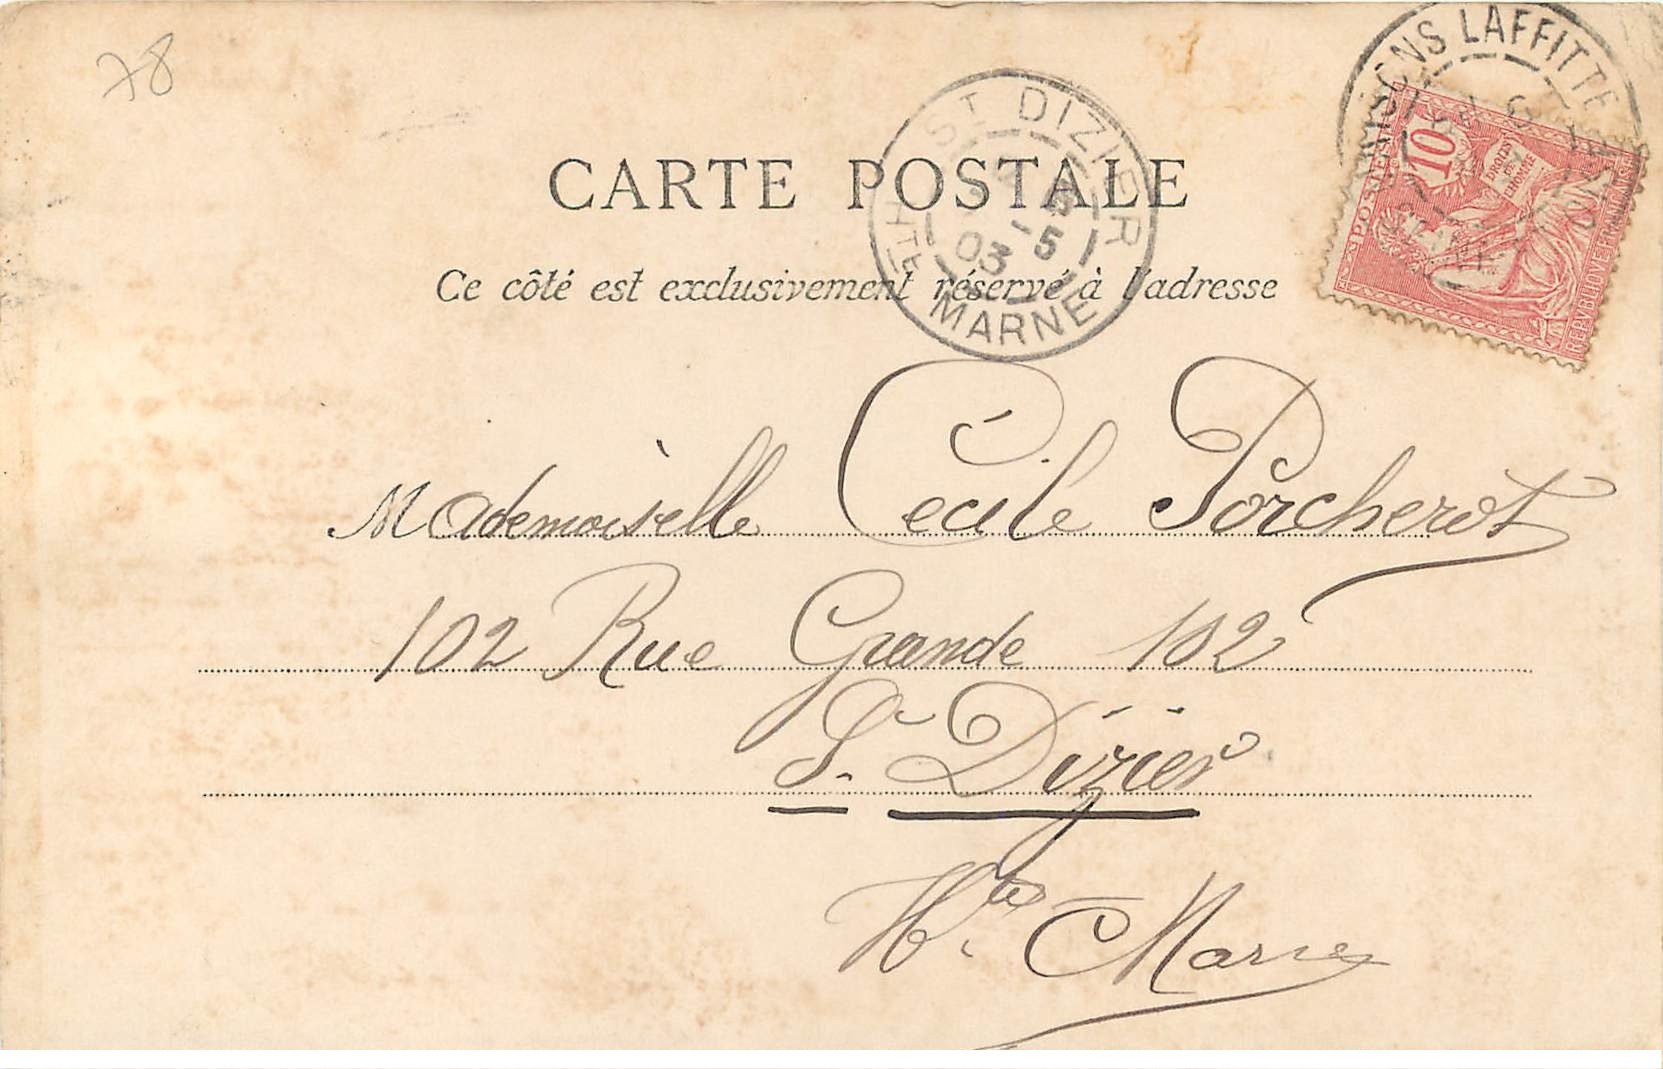 78
MAISONS LAFFITTE
10
POSTES
DROITS
DE
L'HOMME
REPVBLIQVE FRANÇAISE
St DIZIER
5
03
HTE MARNE
CARTE POSTALE
Ce côté est exclusivement réservé à l'adresse
Mademoiselle Cécile Porcherot
102 Rue Grande 102
St. Dizier
Hte. Marne